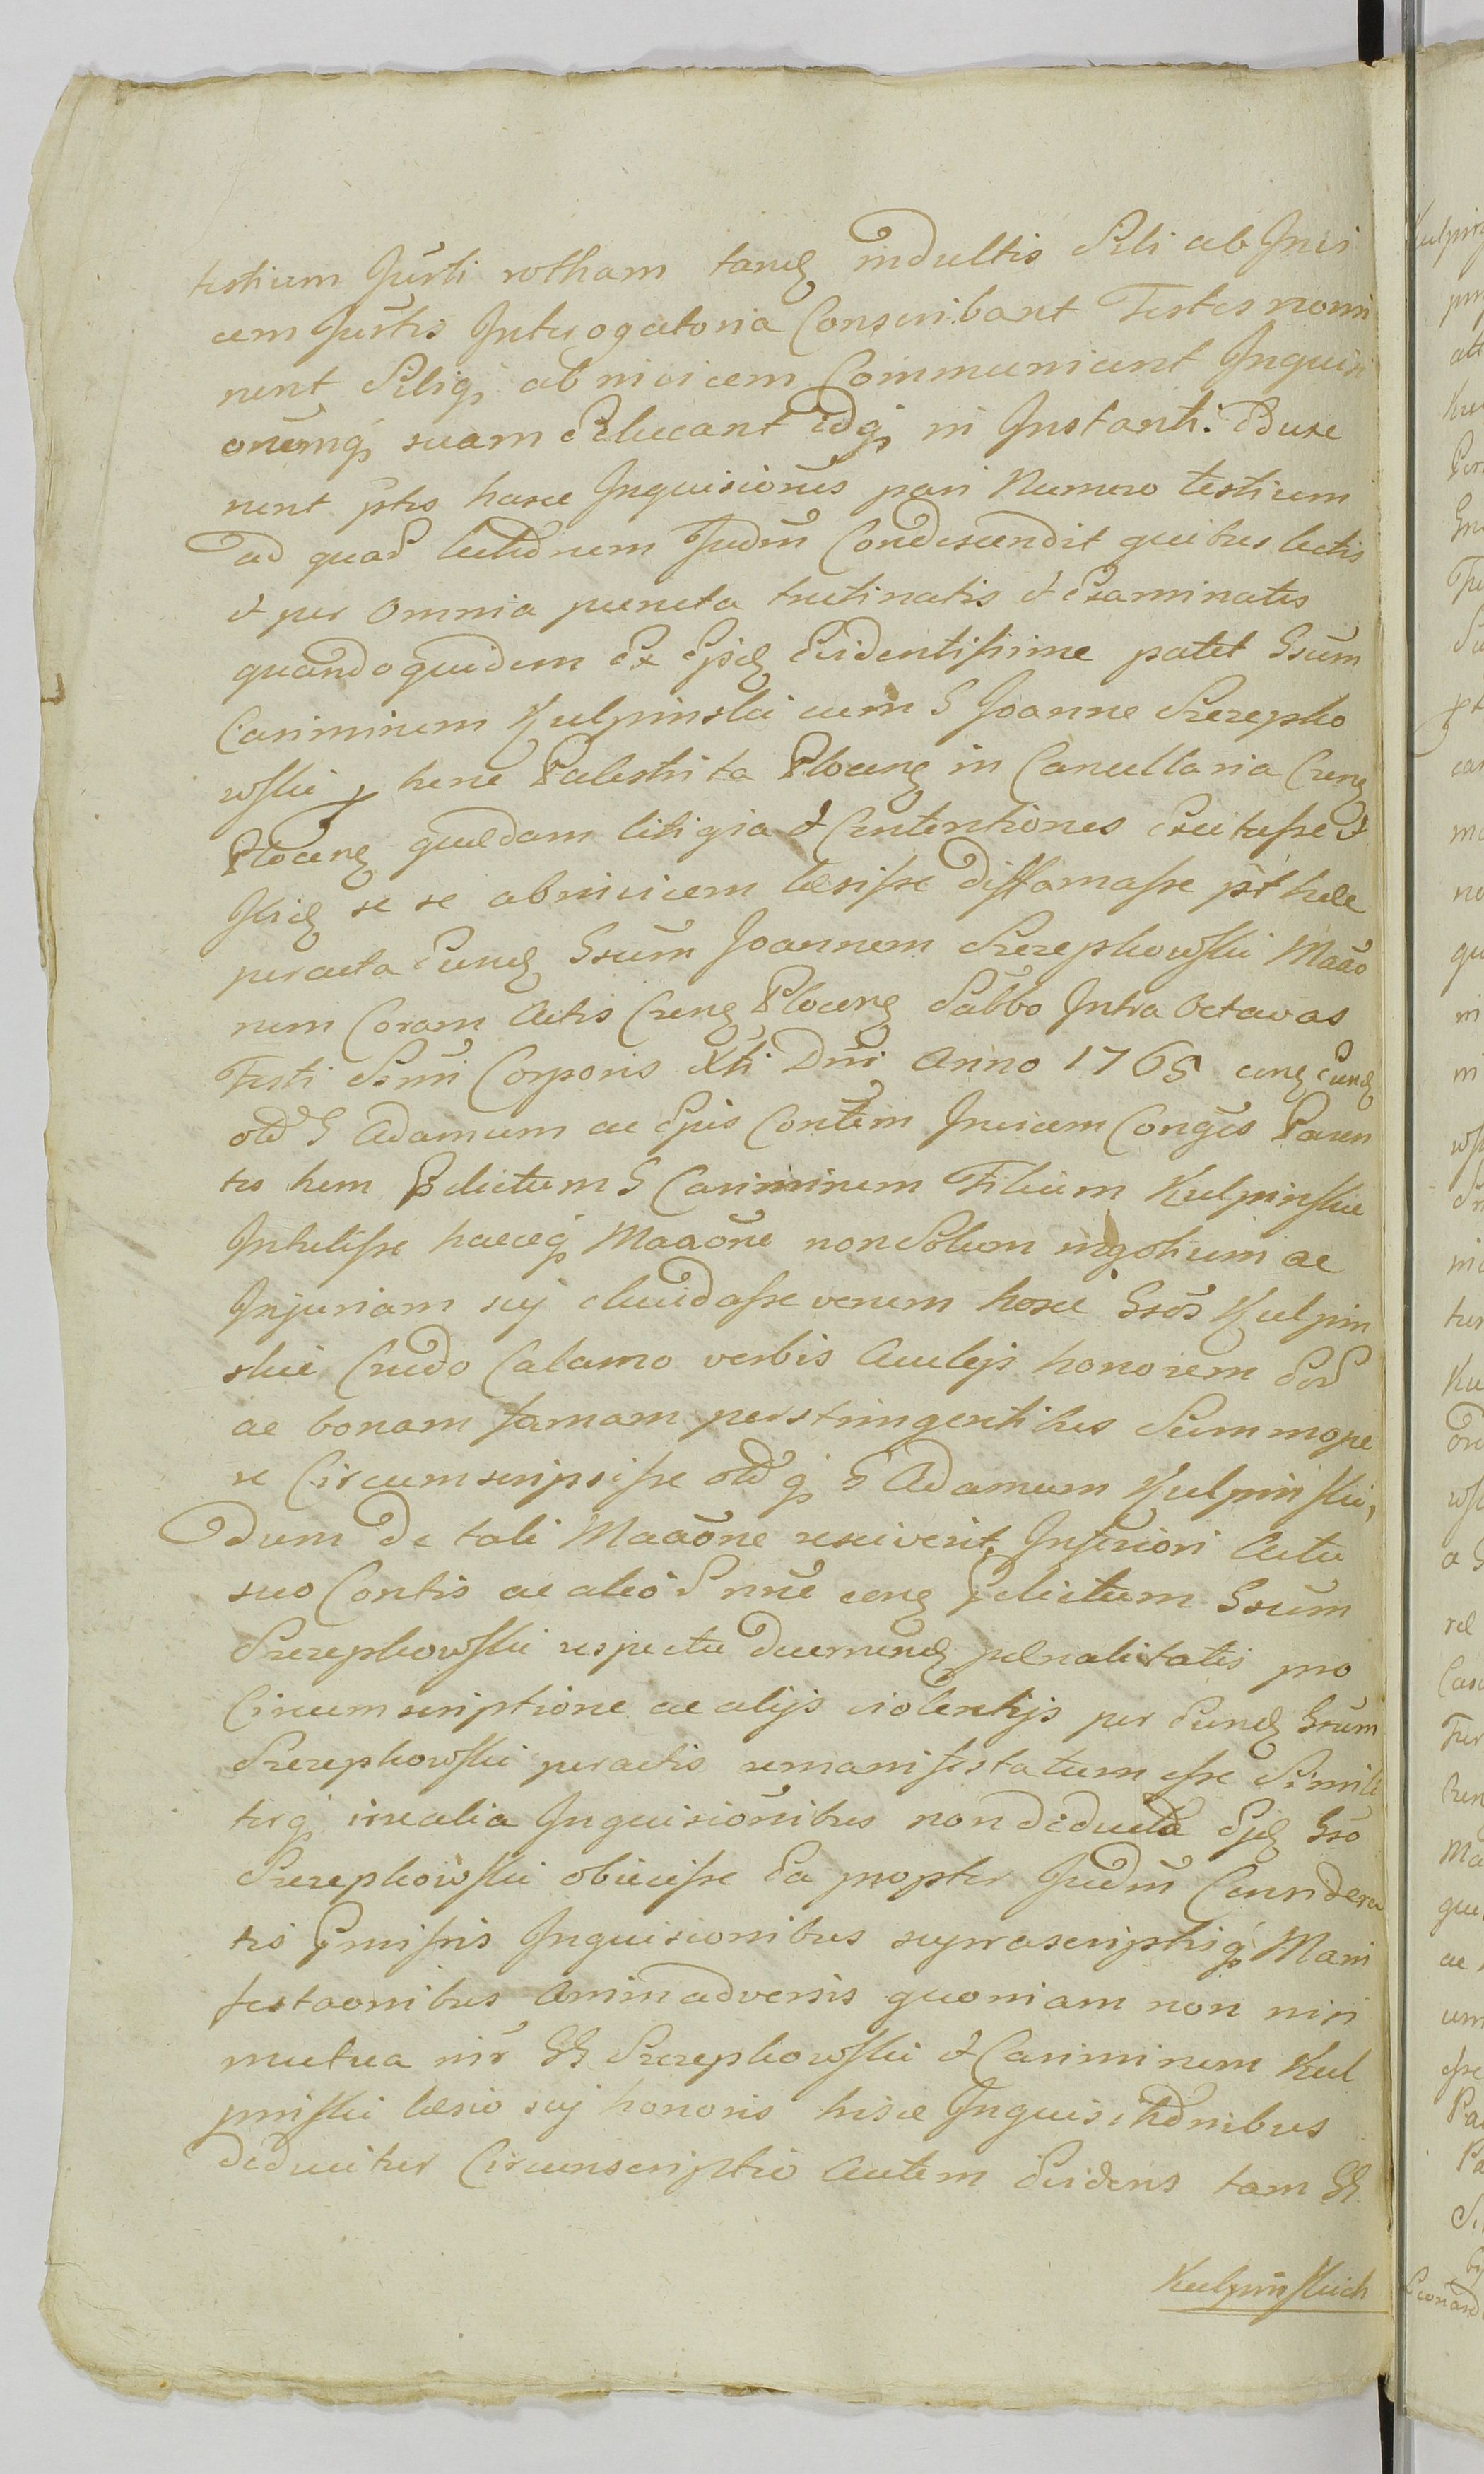 testium Jurti rotham tandꝫ indultis Sibi ab Invi
cem Jurtis Interogatoria Conscribant Testes nomi
nent Sibiqꝫ ab invicem Communicent Inquisi
onemqꝫ suam Educant idqꝫ in Instanti. Eduxe
runt ptes hasce Inquisiones pari Numero testium
ad quar lectionem Judm Condescendit quibus lectis
et per omnia puncta trutinatis et Examinatis
quandoquidem Ex Ijsdꝫ Evidentissime patet Gsum
Casimirum Kulpinski cum G Joanne Szczepko
wski hunc Palestrita Plocenꝫ in Cancellaria Crenꝫ
Plocenꝫ quædam litigia et Contentiones Excitasse et
Ibidꝫ se se ab invicem læsisse diffamasse pst hæc
peracta Eundꝫ Gsum Joannem Szczepkowski Maão
nem Coram Actis Crenꝫ Plocenꝫ Sabbo Intra Octavas
Festi Ssmi Corporis Xti Dni Anno 1765 Eundꝫ
olim G Adamum ac Ejus Contem Invicem Conges Paren
tes tum G Casimirum Filium Kulpinskie
Intulisse hacceqꝫ Maaõne non Solum negotium ac
Injuriam sui elucidasse verum hosce Gsos Kulpin
skie Crudo Calamo verbis Aculejs honorem Eor
ac bonam famam perstringentibus Summope
re Circumscripsisse G Adamum Kulpinski,
dum de tali Maaõne resciverit Inferiori Actu
suo Contis ac alio nne Gsum
Szczepkowski respectu decernendꝫ pænalitatis pro
Circumscriptione ac alijs violentijs per Eundꝫ Gsum
Szczepkowski peractis remanifestatum esse Simili
terqꝫ irrealia Inquisiõnibus non deducta Ejdꝫ Gso
Szczepkowski objecisse Ea propter Judm Considera
tis Pmissis Inquisionibus suprascriptisqꝫ Mani
festaonibus animadversis quoniam non nisi
mutua intr GG Szczepkowski et Casimirum Kul
pinski læsio sui honoris hisce Inquisitionibus
deducitur Circumscriptio Autem Evidens tam GG
Kulpinskich